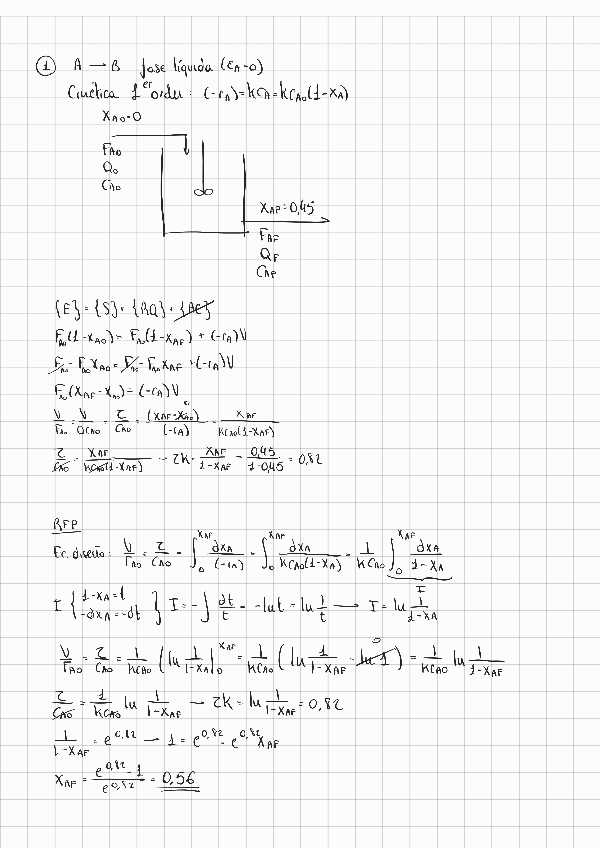 ① A → B fase líquida (εA=0)
Cinética 1er orden: (-rA)=kCA=kCA0(1-XA)
XA0=0
FA0
Q0
CA0
XAF=0,45
FAF
QF
CAF
{E}={S}+{RQ}+{AC}
FA0(1-XA0)=FA0(1-XAF)+(-rA)V
FA0-FA0XA0=FA0-FA0XAF+(-rA)V
FA0(XAF-XA0)=(-rA)V
V/FA0=V/Q CA0=τ/CA0=(XAF-XA0)/(-rA)=XAF/kCA0(1-XAF)
τ/CA0=XAF/kCA0(1-XAF) → τk=XAF/1-XAF=0,45/1-0,45=0,82
RFP
Ec. diseño: V/FA0=τ/CA0=∫0^XAF dXA/(-rA)=∫0^XAF dXA/kCA0(1-XA)=1/kCA0 ∫0^XAF dXA/1-XA
I
I {1-XA=t -dXA=-dt} I=-∫dt/t=-ln t=ln 1/t → I=ln 1/1-XA
V/FA0=τ/CA0=1/kCA0 (ln 1/1-XA)0^XAF=1/kCA0 (ln 1/1-XAF - ln 1)=1/kCA0 ln 1/1-XAF
τ/CA0=1/kCA0 ln 1/1-XAF → τk=ln 1/1-XAF=0,82
1/1-XAF=e^0,82 → 1=e^0,82-e^0,82XAF
XAF=e^0,82-1/e^0,82=0,56